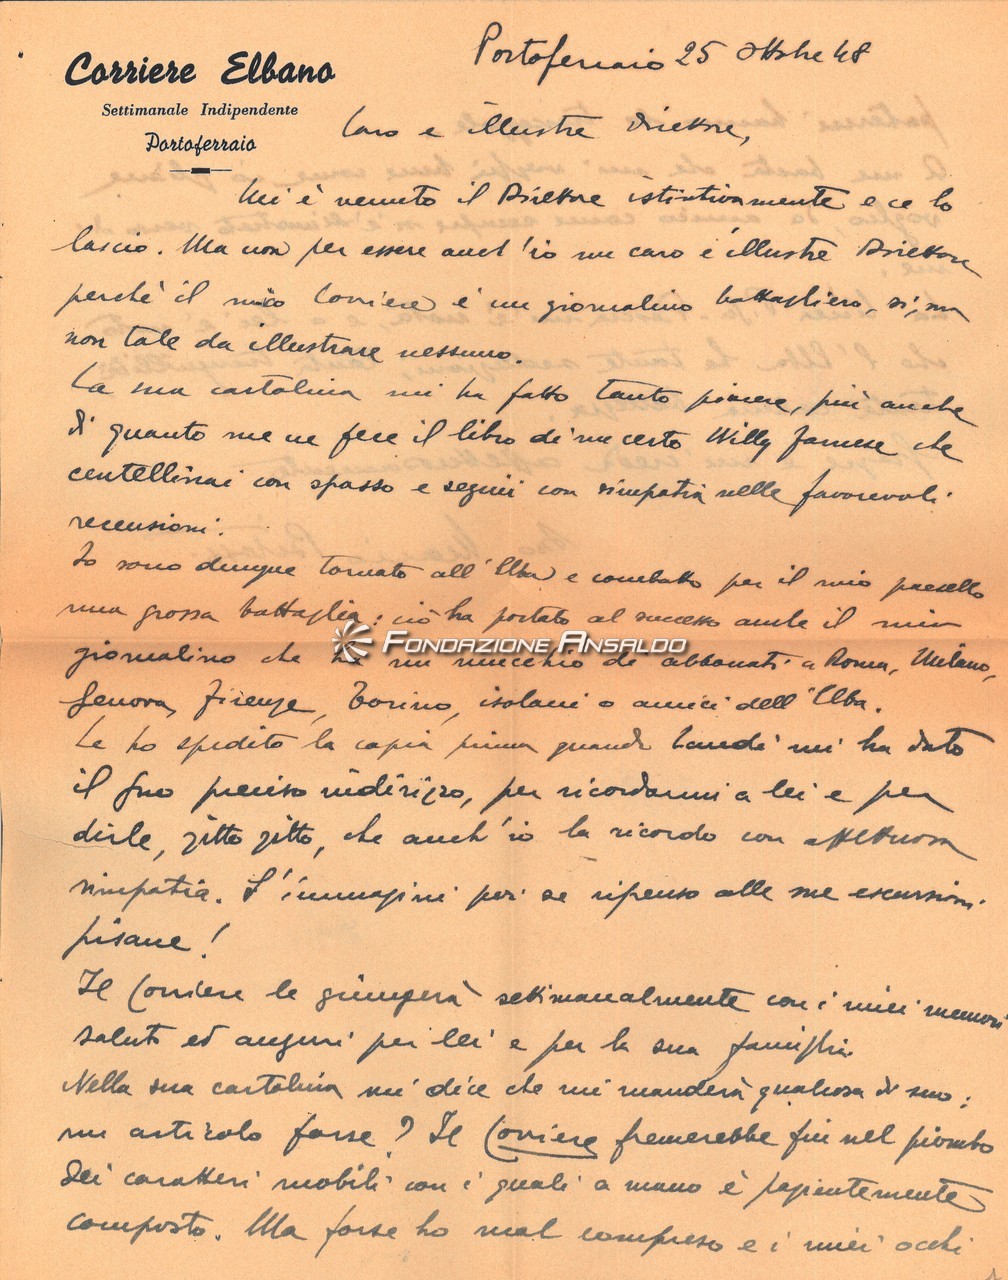 Corriere Elbano
Settimanale Indipendente
Portoferraio
Portoferraio 25 ottobre 48
Caro e illustre Direttore,
Mi è venuto il Direttore istintivamente e ce lo
lascio. Ma non per essere anch'io un caro e illustre Direttore
perchè il mio Corriere è un giornalino battagliero, sì, ma
non tale da illustrare nessuno.
La sua cartolina mi ha fatto tanto piacere, più anche
di quanto me ne fece il libro di un certo Willy Farnese che
centellinai con spasso e seguii con simpatia nelle favorevoli
recensioni.
Io sono dunque tornato all'Elba e combatto per il mio paesello
una grossa battaglia: ciò ha portato al successo anche il mio
giornalino che ha un mucchio di abbonati a Roma, Milano,
Genova, Firenze, Torino, isolani o amici dell'Elba.
Le ho spedito la copia prima quando Landi mi ha dato
il Suo preciso indirizzo, per ricordarmi a lei e per
dirle, zitto zitto, che anch'io la ricordo con affettuosa
simpatia. S'immagini poi se ripenso alle sue escursioni
pisane!
Il Corriere le giungerà settimanalmente con i miei memori
saluti ed auguri per lei e per la sua famiglia.
Nella sua cartolina mi dice che mi manderà qualcosa di suo:
un articolo forse? Il Corriere fremerebbe fin nel piombo
dei caratteri mobili con i quali a mano è pazientemente
composto. Ma forse ho mal compreso e i miei occhi
FONDAZIONE ANSALDO